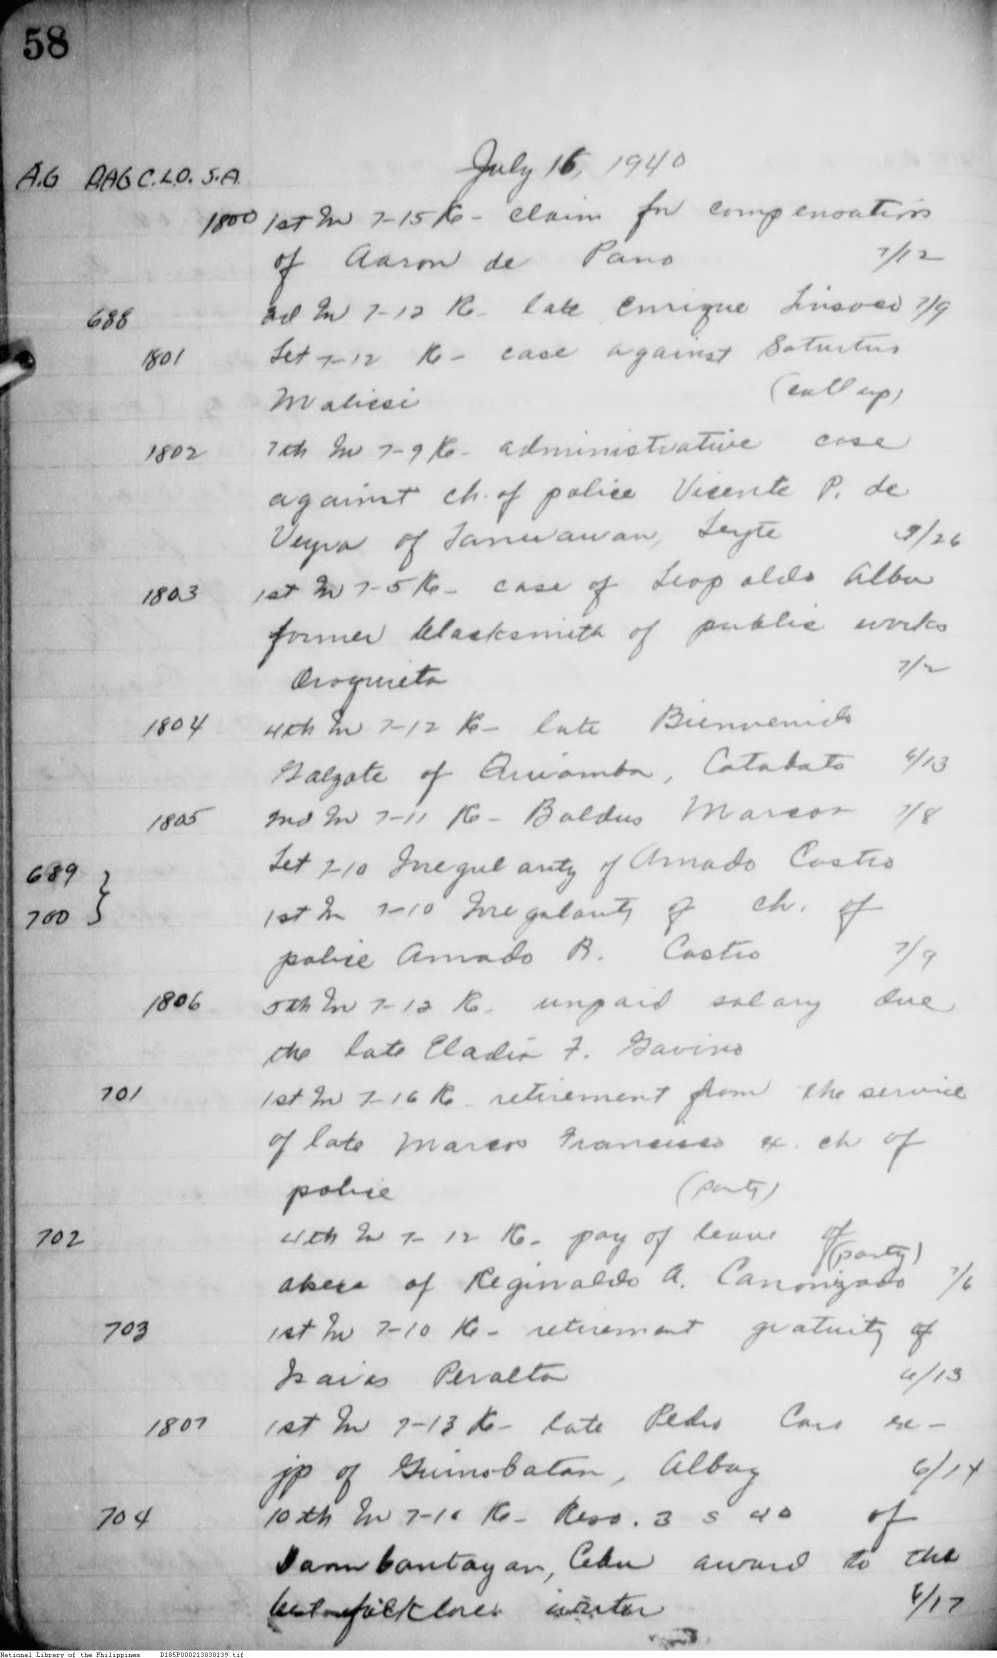 58
July 16, 1940
A.G AAG C.L.O. S.A.
1800 1st In 7-15 Re- claim for compensation
of Aaron de Pano 7/12
688 2d In 7-12 Re- late Enrique 7/9
1801 Let 7-12 Re- case against
Malicsi (call up)
1802 7th In 7-9 Re- administrative case
against ch. of police Vicente P. de
Veyra of Tanauan, Leyte 3/26
1803 1st In 7-5 Re- case of Leopoldo Alba
former blacksmith of public works
Oroquieta 7/2
1804 4th In 7-12 Re- late Bienvenido
Galzote of Kiamba, Catabato 6/13
1805 2nd In 7-11 Re- Baldus Marcos 7/8
689 Let 7-10 Irregularity of Amado Castro
700 1st In 7-10 Irregularity of ch. of
police Amado R. Castro 7/9
1806 5th In 7-12 Re- unpaid salary due
the late Eladio F. Gavino
701 1st In 7-16 Re- retirement from the service
of late Marcos Francisco ex. ch of
police (party)
702 4th In 7-12 Re- pay of leave of
absce of Reginaldo A. Canonizado (party) 7/6
703 1st In 7-10 Re- retirement gratuity of
Isaias Peralta 6/13
1807 1st In 7-13 Re- late Pedro Caro ex-
jp of Guinobatan, Albay 6/14
704 10th In 7-16 Re- Reso. 3 s 40 of
Daanbantayan, Cebu award to the
folklore writer 6/17
National Library of the Philippines